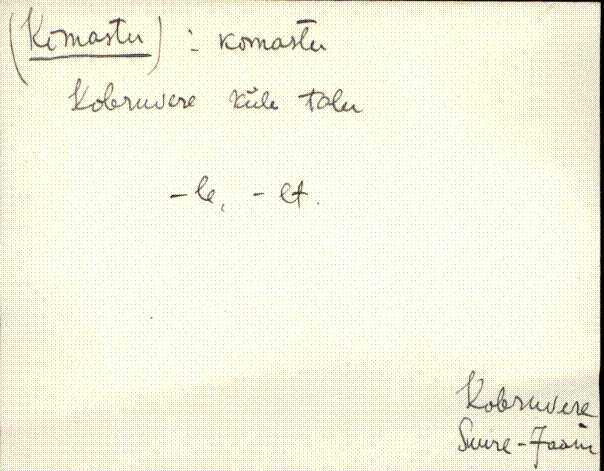 (Kõmastu) : komastu
Kobruvere küla talu
-le, -lt.
Kobruvere
Suure-Jaani